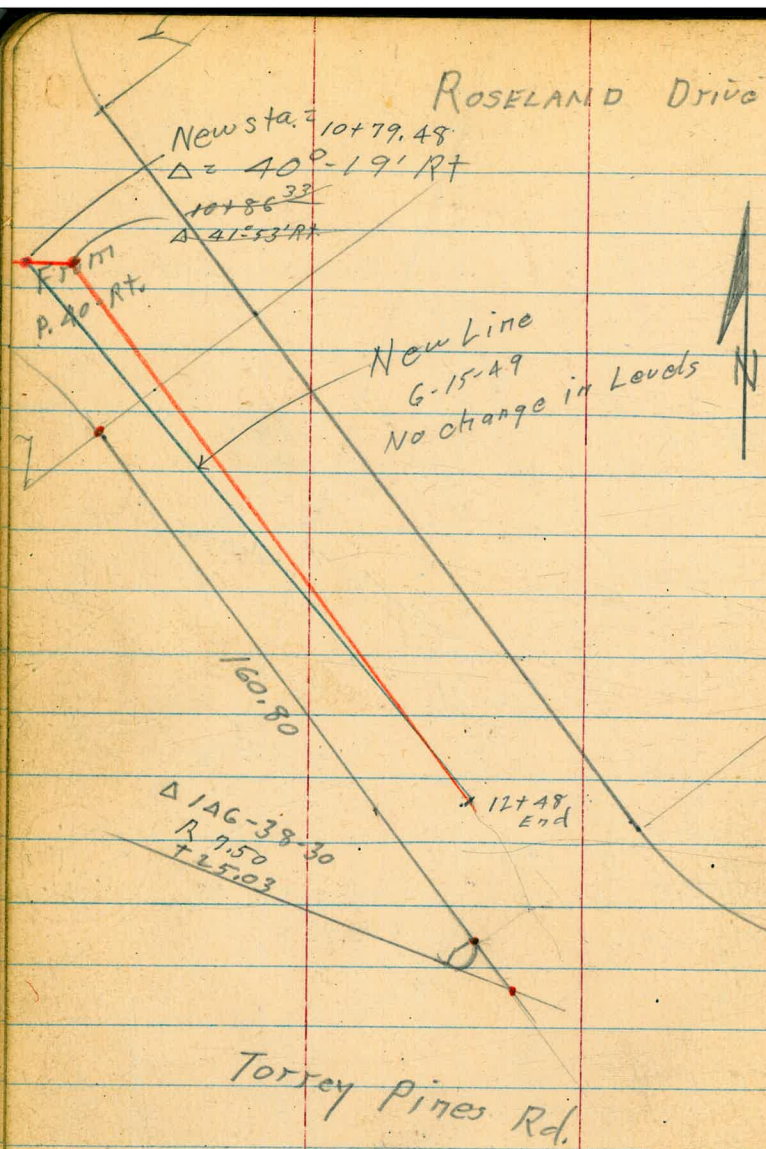 ROSELAND Drive
New sta. = 10+79.48
Δ = 40°-19' Rt
10+86 33
Δ 41°-53' Rt.
From
P. 40-Rt.
New Line
6-15-49
No change in Levels
N
160.80
12+48
End
Δ 146-38-30
R 7.50
T 25.03
Torrey Pines Rd.